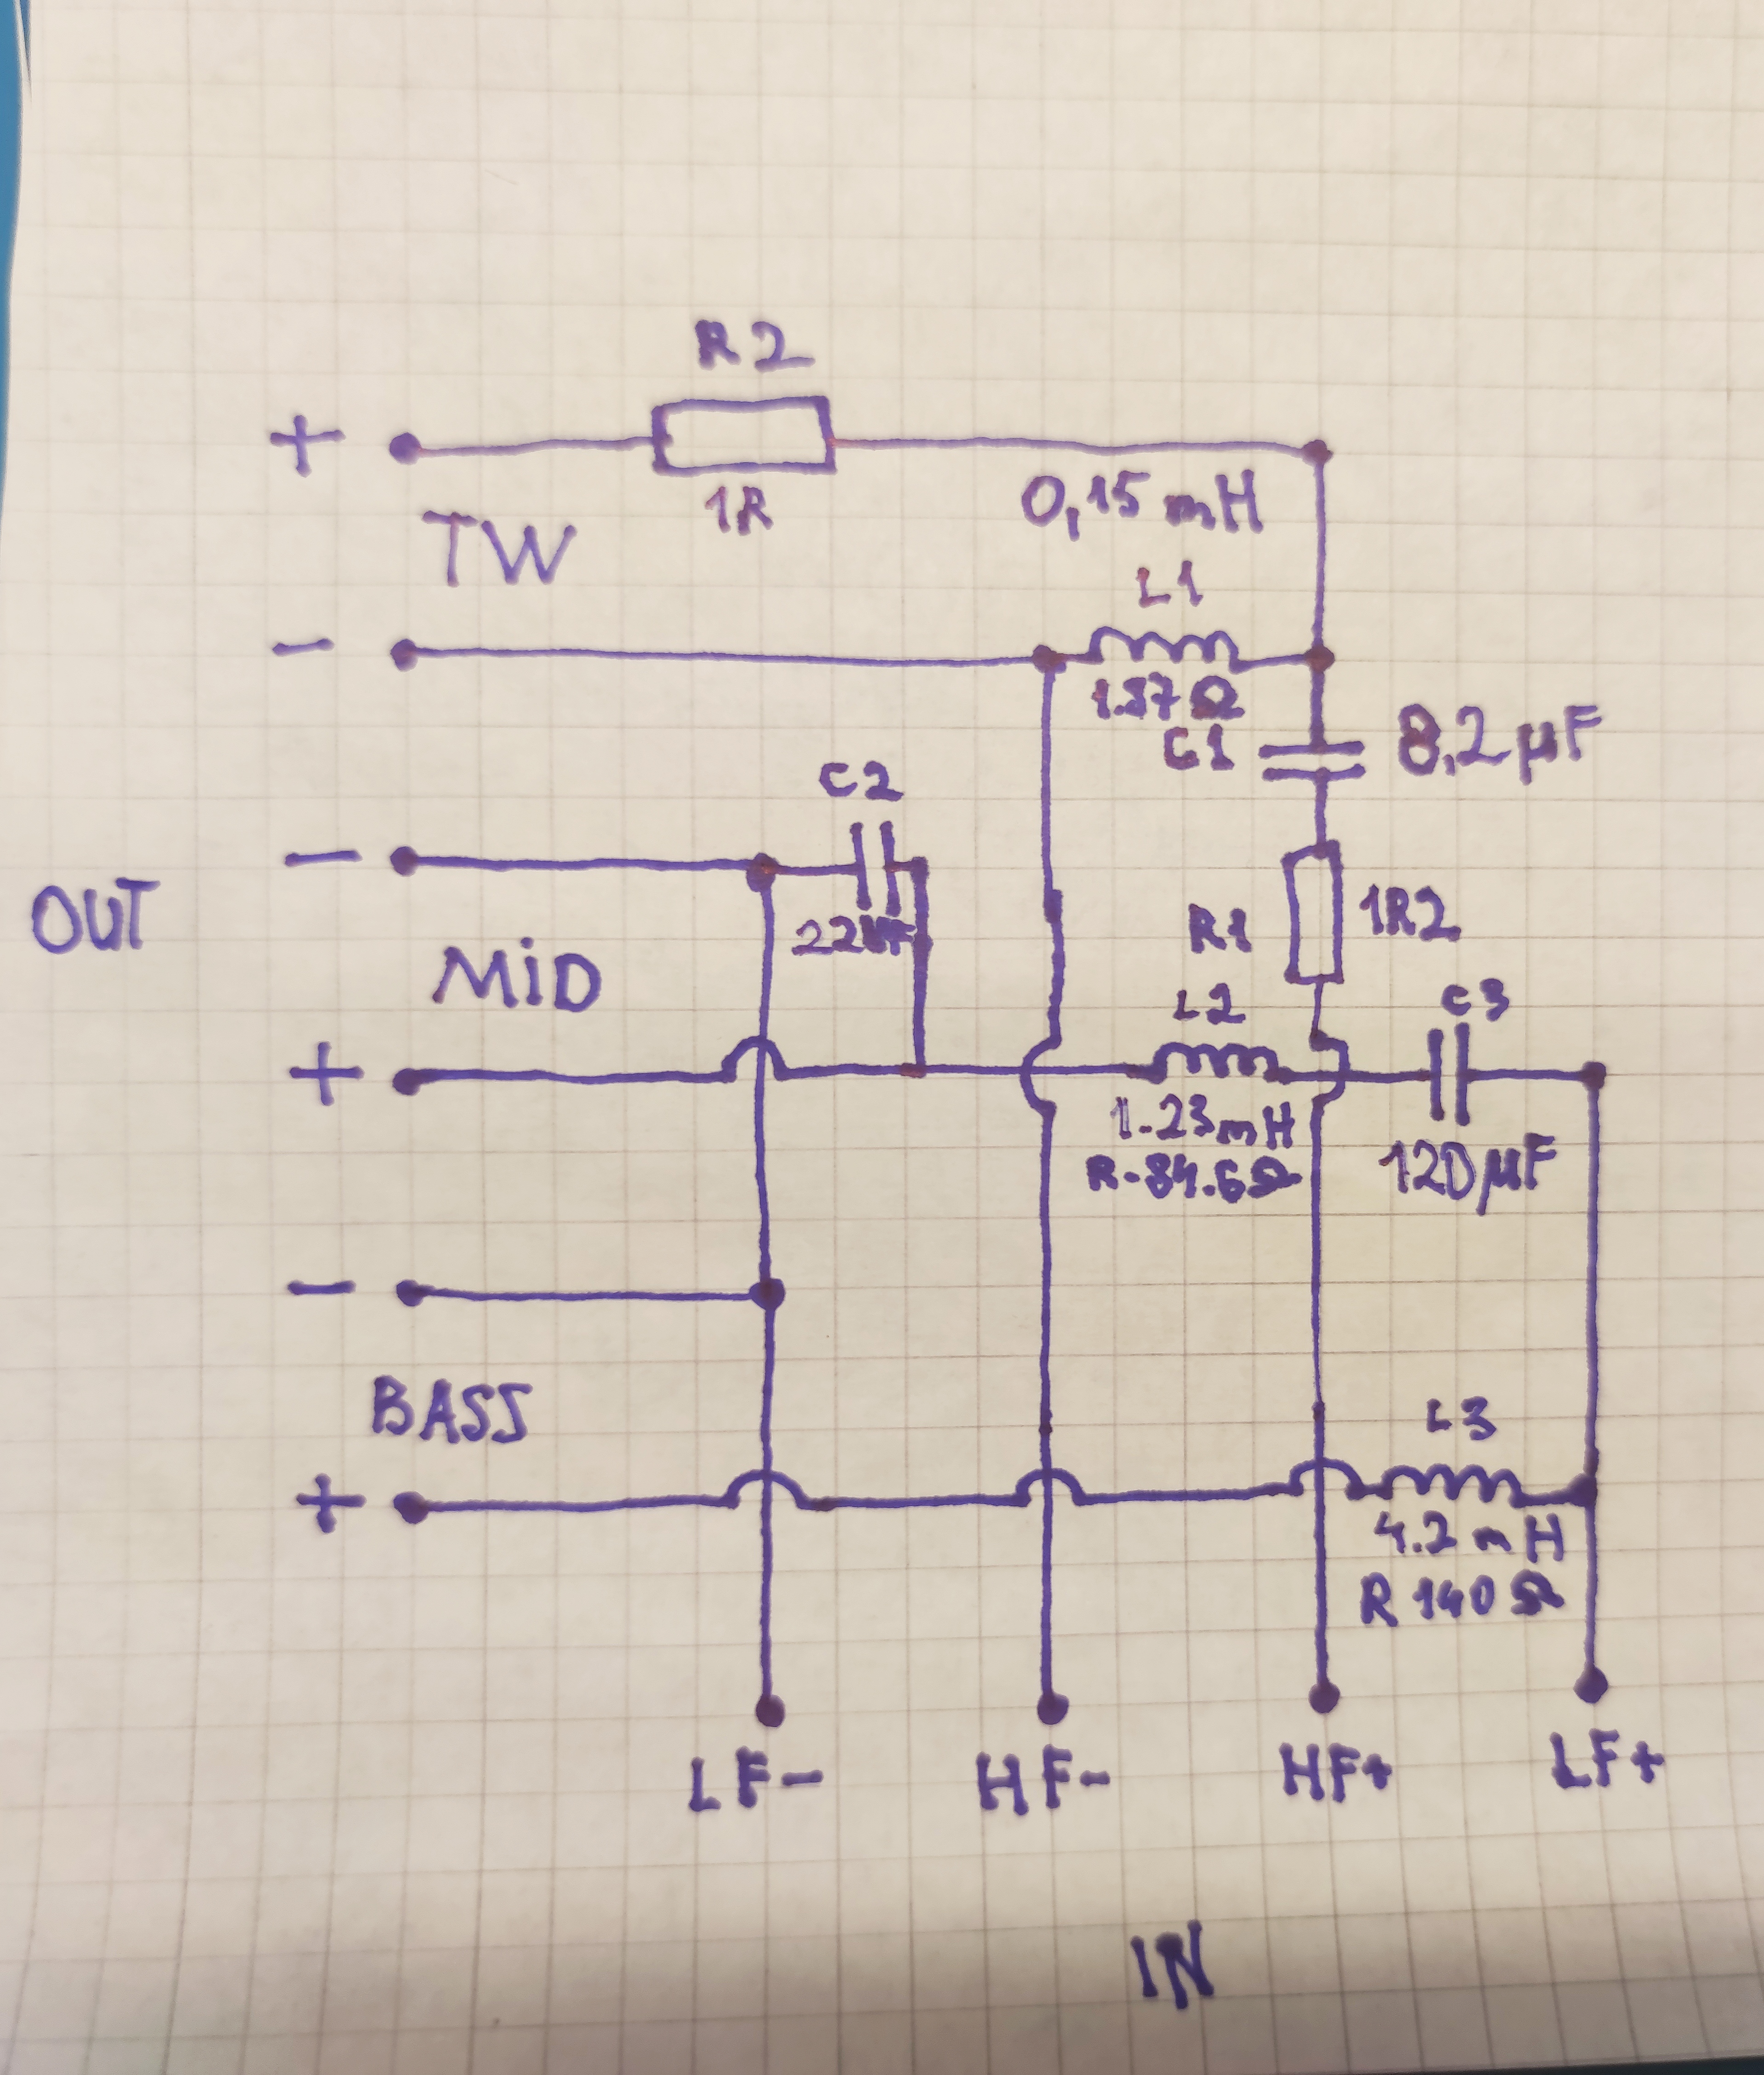 R2
+
1R
0,15mH
TW
L1
−
1.37Ω
C1
8,2µF
C2
−
OUT
R1
1R2
MiD
L2
C3
+
1-23mH
120µF
−
BASS
L3
+
4.2mH
R 140Ω
LF-
HF-
HF+
LF+
IN